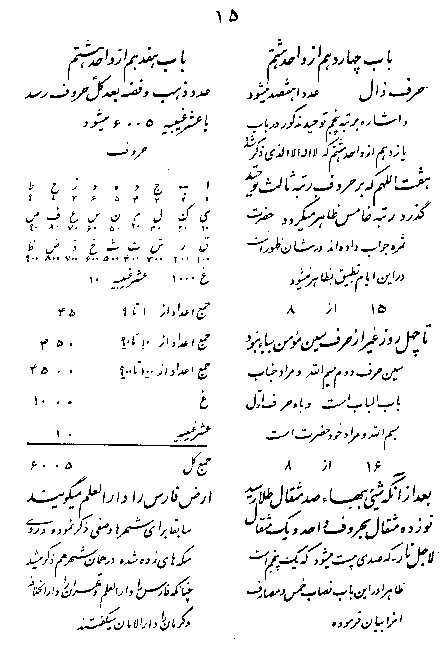 ۱۵
باب چهاردهم از واحد هشتم
حرف ذال عدد اهتصد میشود
و اشاره بمرتبه پنجم توحید مذکور در باب
یازدهم از واحد هشتم که لا اله الا الذی ذکر شد
هفت اللهم که بر حروف رتبه ثالث توحید
گذرد رتبه خامس ظاهر میگردد حضرت
ثمره جواب داده‌اند در شان ظهور است
در این ایام تطبیق بظاهر میشود
۱۵ از ۸
تا چهل روز غیر از حرف سین مؤمن بیا نبود
سین حرف دوم بسم الله و مراد جناب
باب الباب است و باء حرف اول
بسم الله و مراد خود حضرت است
۱۶ از ۸
بعد از آنکه شیئ بهاء صد مثقال طلا رسید
نوزده مثقال بحروف واحد و یک مثقال
لاجل نار که صدی بیست میشود که یک پنجم است
ظاهرا در این باب نصاب خمس و مصارف
انرا بیان فرموده
باب هفدهم از واحد هشتم
عدد ذهب و فضه بعد کل حروف رسد
با عشر غیبیه ۶۰۰۵ میشود
حروف
ا ب ج د ه و ز ح ط
۱ ۲ ۳ ۴ ۵ ۶ ۷ ۸ ۹
ی ک ل م ن س ع ف ص
۱۰ ۲۰ ۳۰ ۴۰ ۵۰ ۶۰ ۷۰ ۸۰ ۹۰
ق ر ش ت ث خ ذ ض ظ
۱۰۰ ۲۰۰ ۳۰۰ ۴۰۰ ۵۰۰ ۶۰۰ ۷۰۰ ۸۰۰ ۹۰۰
غ ۱۰۰۰ عشر غیبیه ۱۰
جمع اعداد از ۱ تا ۹ ۴۵
جمع اعداد از ۱۰ تا ۹۰ ۴۵۰
جمع اعداد از ۱۰۰ تا ۹۰۰ ۴۵۰۰
غ ۱۰۰۰
عشر غیبیه ۱۰
جمع کل ۶۰۰۵
ارض فارس را دار العلم میگویند
سابقا برای شهرها وصفی ذکر نموده و روی
سکه‌های زده شده در همان شهر هم ذکر میشد
چنانکه فارس را دار العلم و طهران را دار الخلافه
و کرمان را دار الامان میگفتند